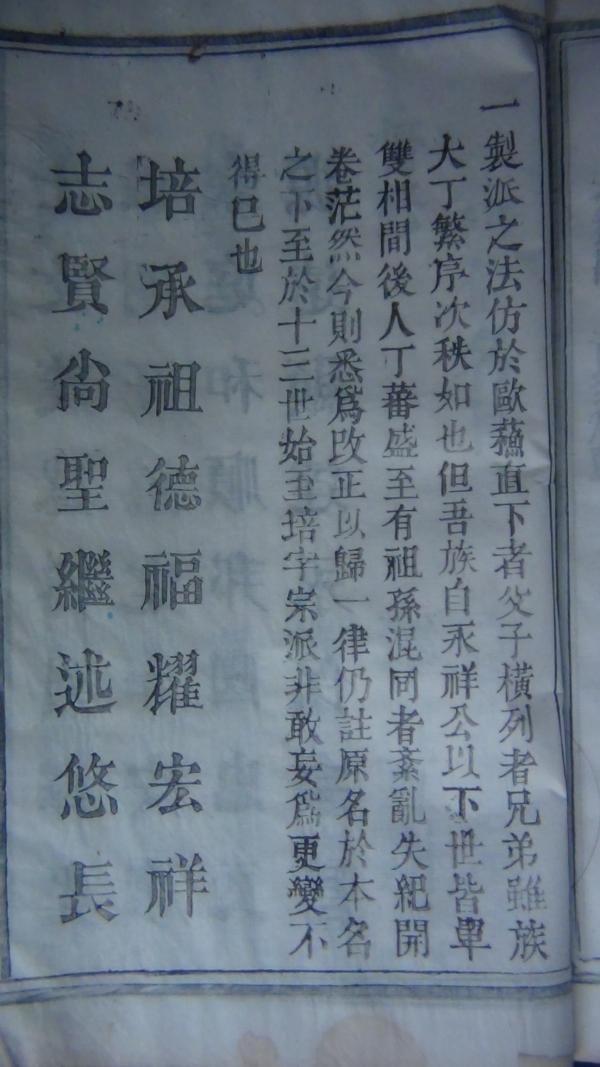 一製派之法仿於歐蘓直下者父子橫列者兄弟雖族
大丁繁序次秩如也但吾族自永祥公以下世皆單
雙相間後人丁蕃盛至有祖孫混同者紊亂失紀開
卷茫然今則悉爲改正以歸一律仍註原名於本名
之下至於十三世始至培字宗派非敢妄爲更變不
得已也
培承祖德福耀宏祥
志賢尚聖繼述悠長